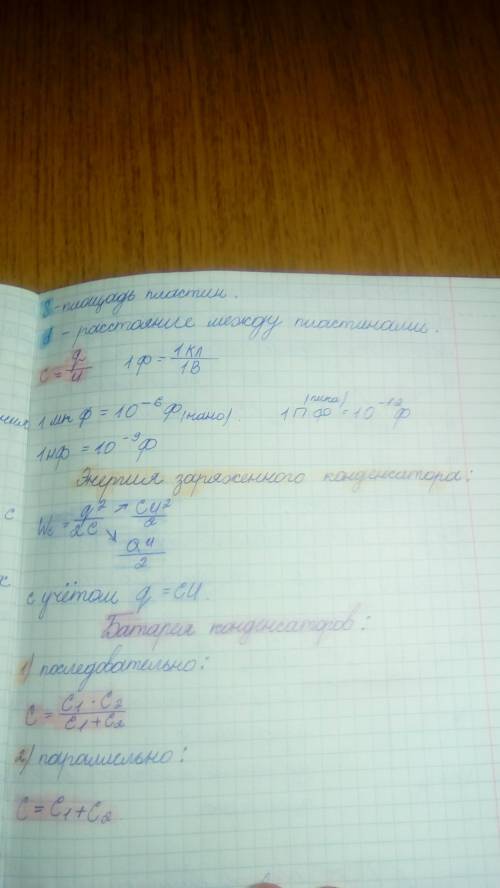 S - площадь пластин.
d - расстояние между пластинами.
C = q/U 1Ф = 1Кл/1В
1 мк Ф = 10⁻⁶ Ф (нано). 1 П Ф (пика) = 10⁻¹² Ф
1нФ = 10⁻⁹ Ф
Энергия заряженного конденсатора:
с
Wc = q²/2C → CU²/2
↘ QU/2
с учётом q = CU.
Батарея конденсаторов:
1) последовательно:
C = C₁ · C₂/C₁ + C₂
2) параллельно:
C = C₁ + C₂